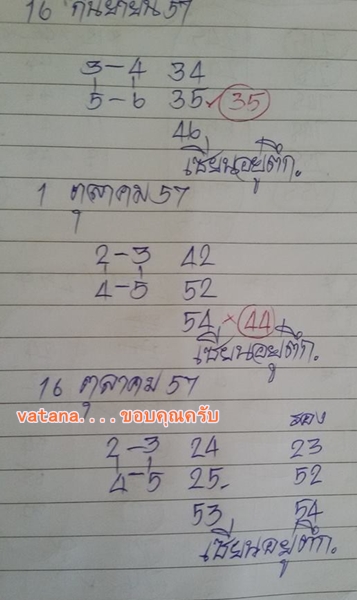 16 กันยายน 57
3-4 34
5-6 35✓ 35
46
เซียนอยู่ตึก.
1 ตุลาคม 57
2-3 42
4-5 52
54 × 44
เซียนอยู่ตึก.
16 ตุลาคม 57
vatana.... ขอบคุณครับ
รอง
2-3 24 23
4-5 25- 52
53 54
เซียนอยู่ตึก.